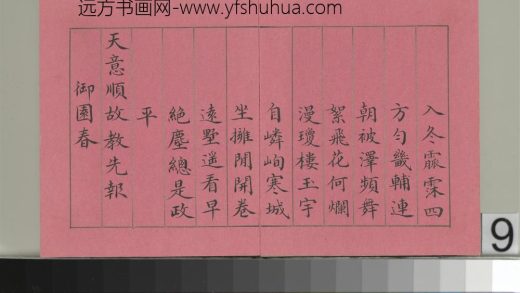 远方书画网-www.yfshuhua.com
入冬霢霂四
方勻畿輔連
朝被澤頻舞
絮飛花何爛
漫瓊樓玉宇
自嶙峋寒城
坐擁閒開卷
遠墅遥看早
絶塵總是政
平
天意順故教先報
御園春
9